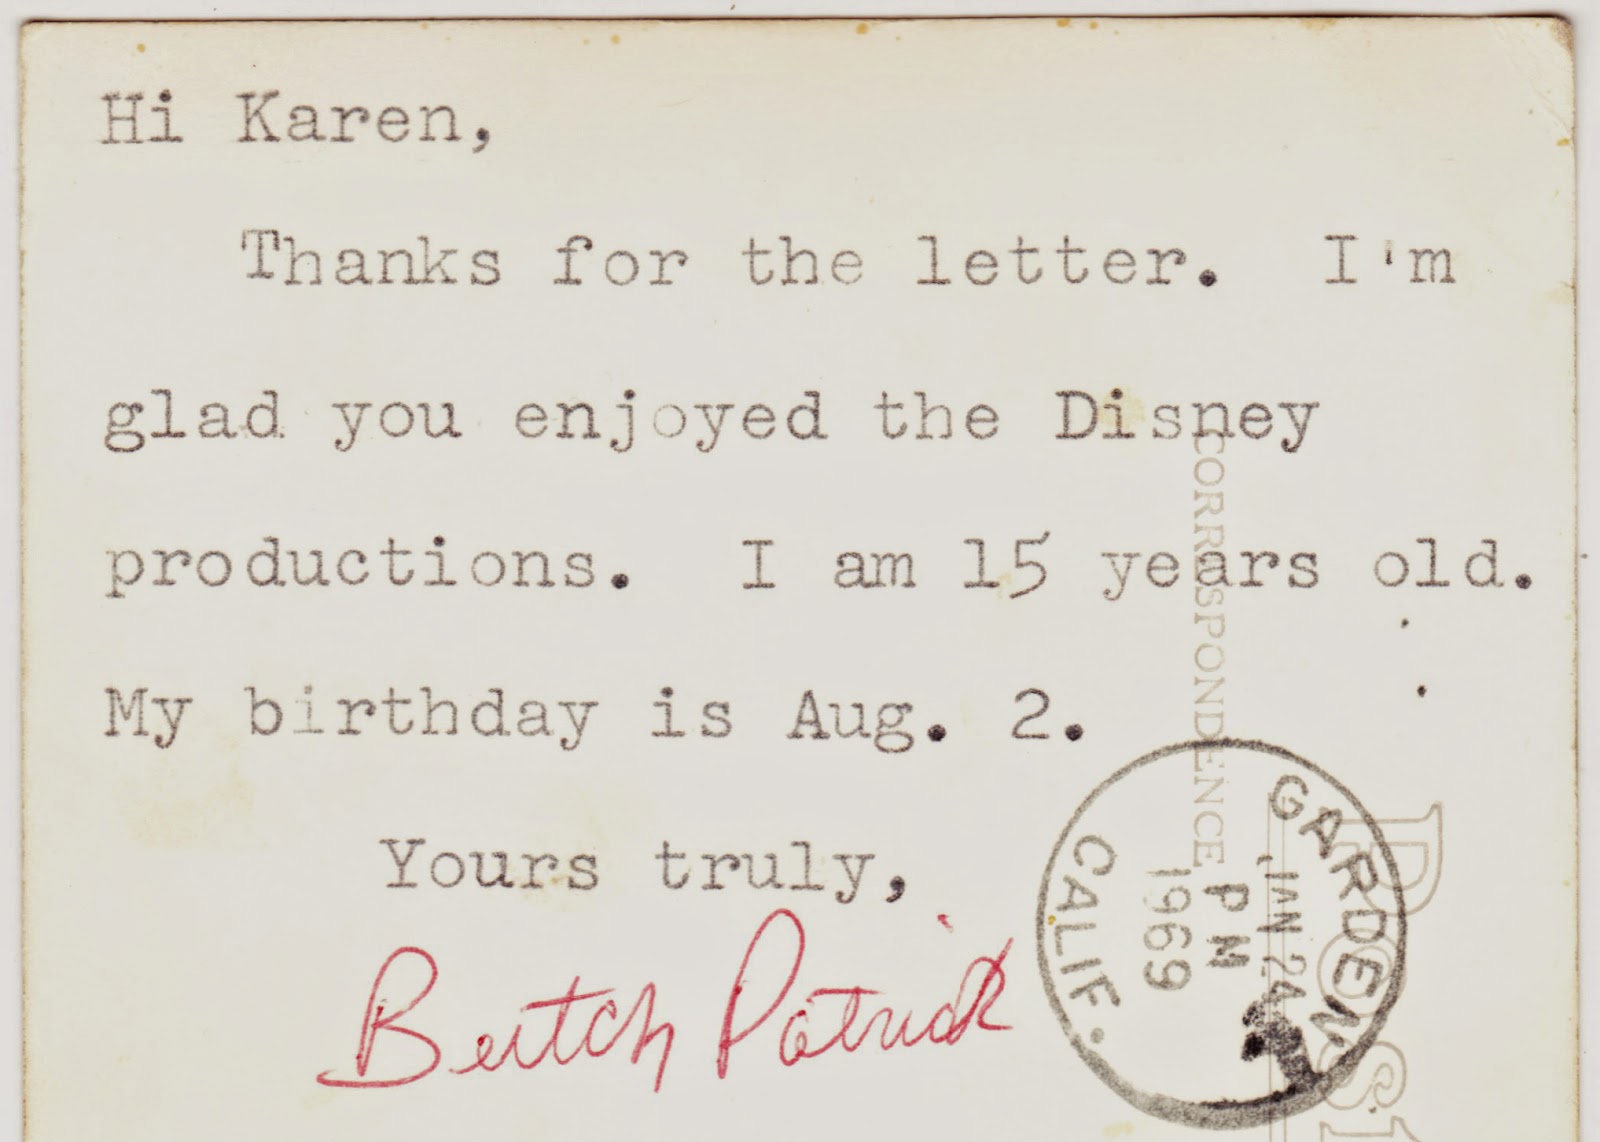 Hi Karen,
Thanks for the letter. I'm
glad you enjoyed the Disney
productions. I am 15 years old.
My birthday is Aug. 2.
Yours truly,
Butch Patrick
CORRESPONDENCE
GARDEN
JAN 24
PM
1969
CALIF.